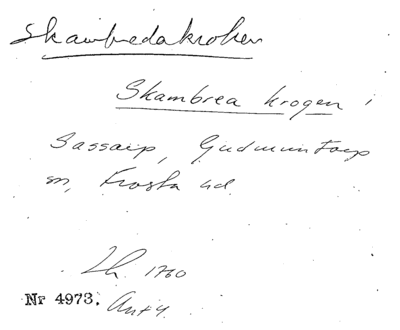 Skambredakroken
Skambrea krogen i
Sassarp, Gudmuntorp
sn, Frosta hd.
Lh 1760
Nr 4973. Ant 4.